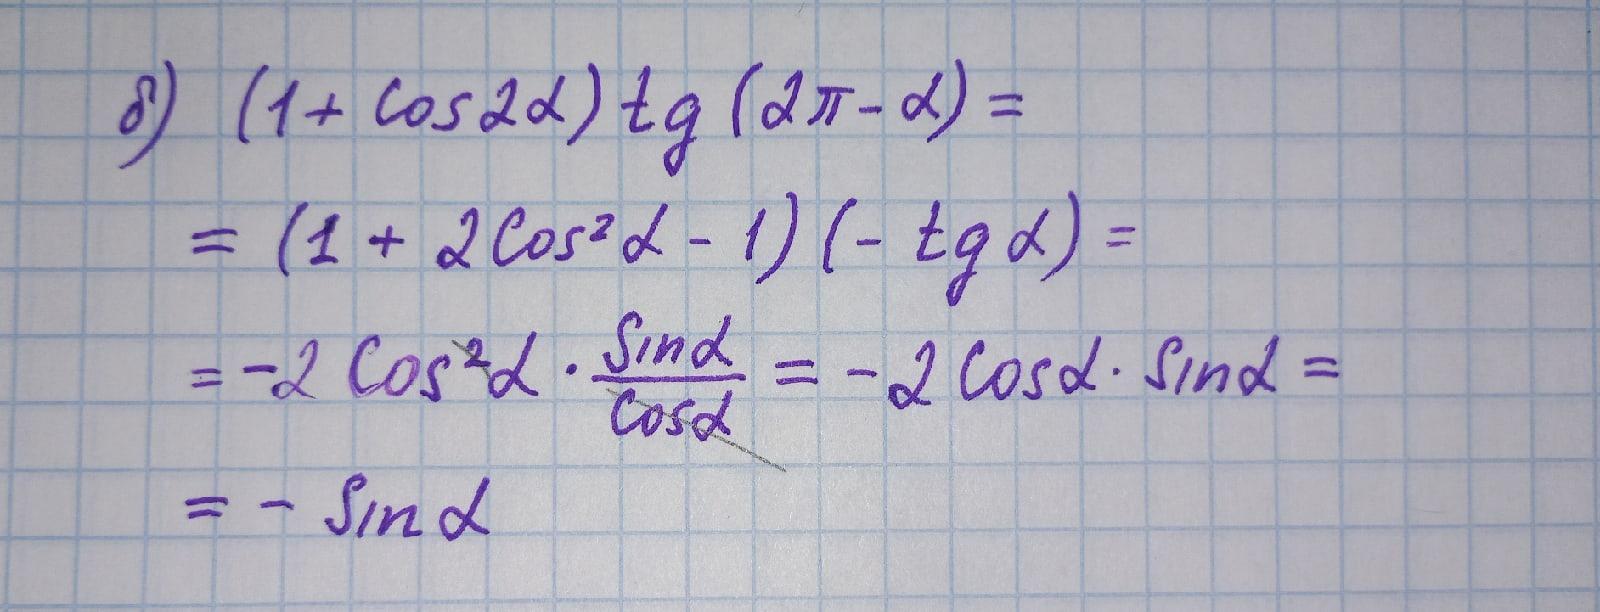 б) (1 + cos2α) tg (2π - α) =
= (1 + 2cos²α - 1) (- tg α) =
= -2 cos²α · sinα/cosα = -2 cosα · sinα =
= - sinα